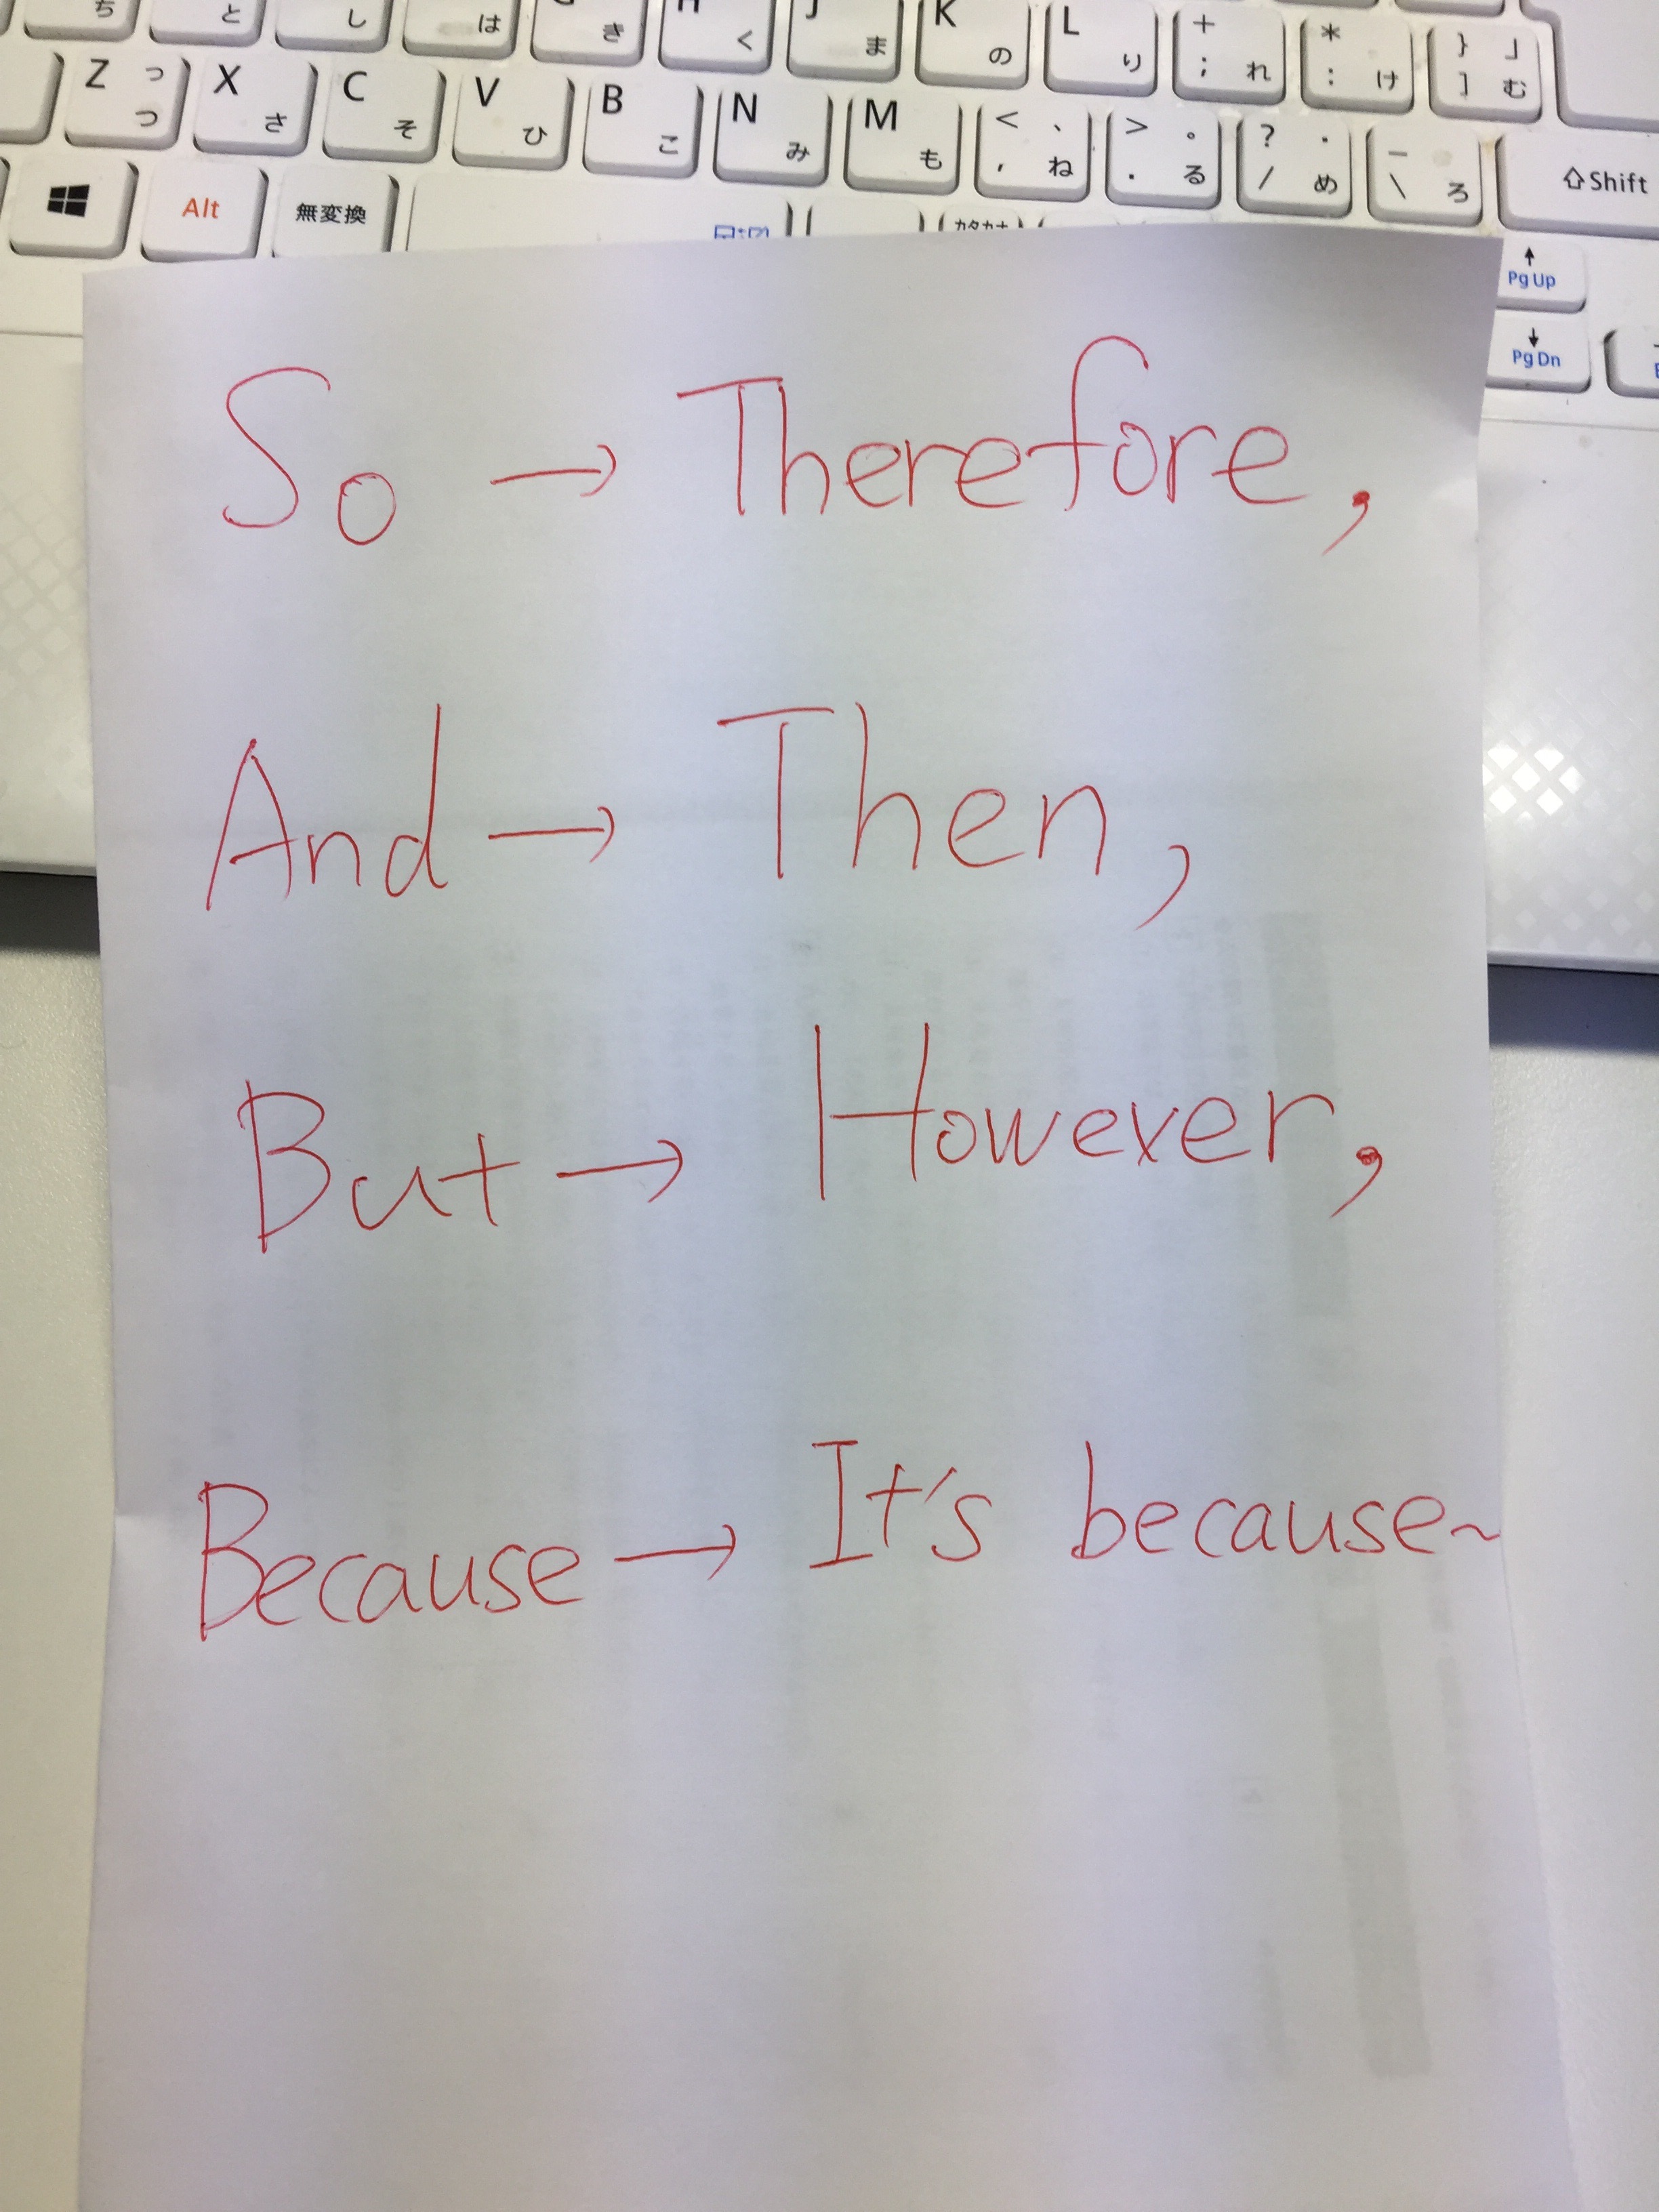 ち と し は き く ま K の L り + ; れ * : け } 」 ] む
Z っ つ X さ C そ V ひ B こ N み M も < 、 , ね > 。 . る ? ・ / め _ \ ろ ⇧Shift
Alt 無変換
PgUp
PgDn
So → Therefore,
And → Then,
But → However,
Because → It's because~